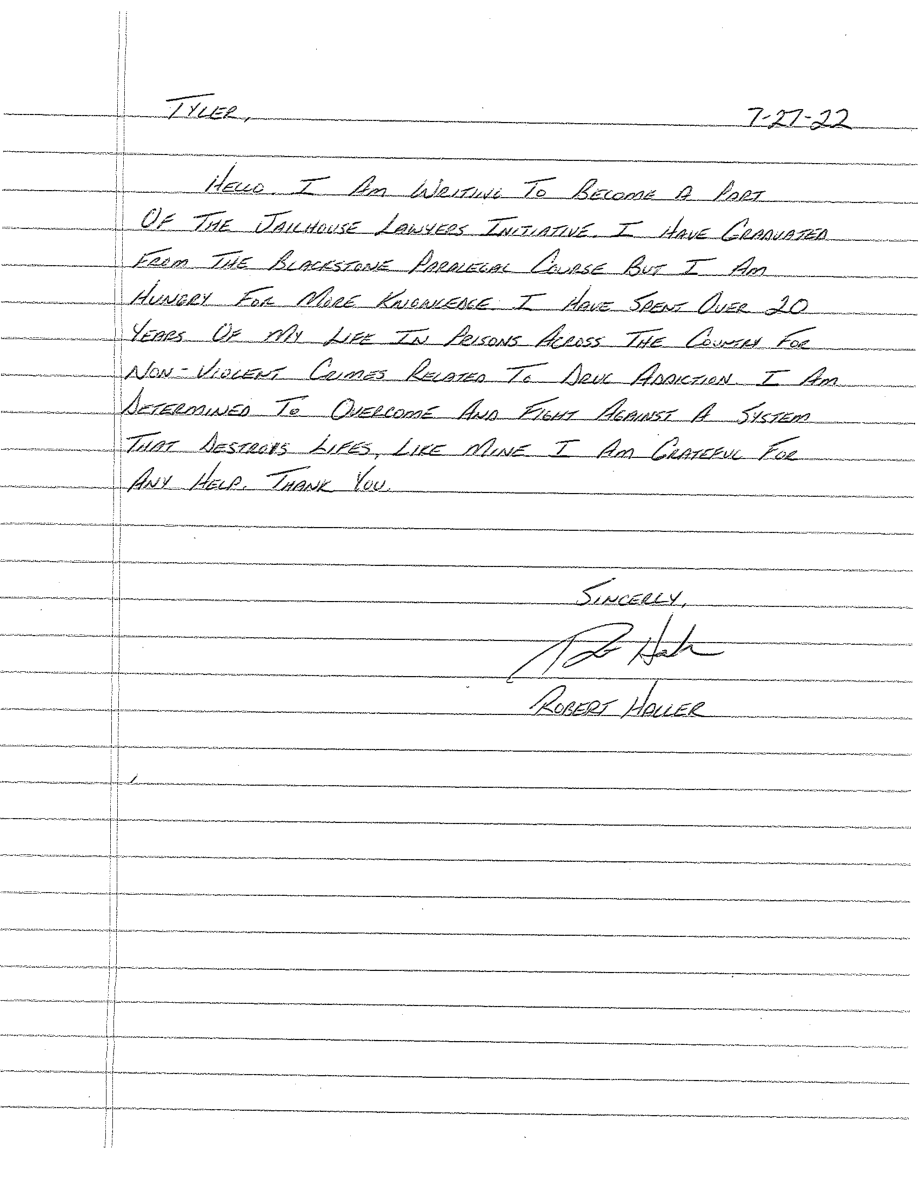 TYLER,
7-27-22
HELLO. I AM WRITING TO BECOME A PART
OF THE JAILHOUSE LAWYERS INITIATIVE. I HAVE GRADUATED
FROM THE BLACKSTONE PARALEGAL COURSE BUT I AM
HUNGRY FOR MORE KNOWLEDGE. I HAVE SPENT OVER 20
YEARS OF MY LIFE IN PRISONS ACROSS THE COUNTRY FOR
NON-VIOLENT CRIMES RELATED TO DRUG ADDICTION. I AM
DETERMINED TO OVERCOME AND FIGHT AGAINST A SYSTEM
THAT DESTROYS LIFES, LIKE MINE. I AM GRATEFUL FOR
ANY HELP. THANK YOU.
SINCERLY,
ROBERT HALLER